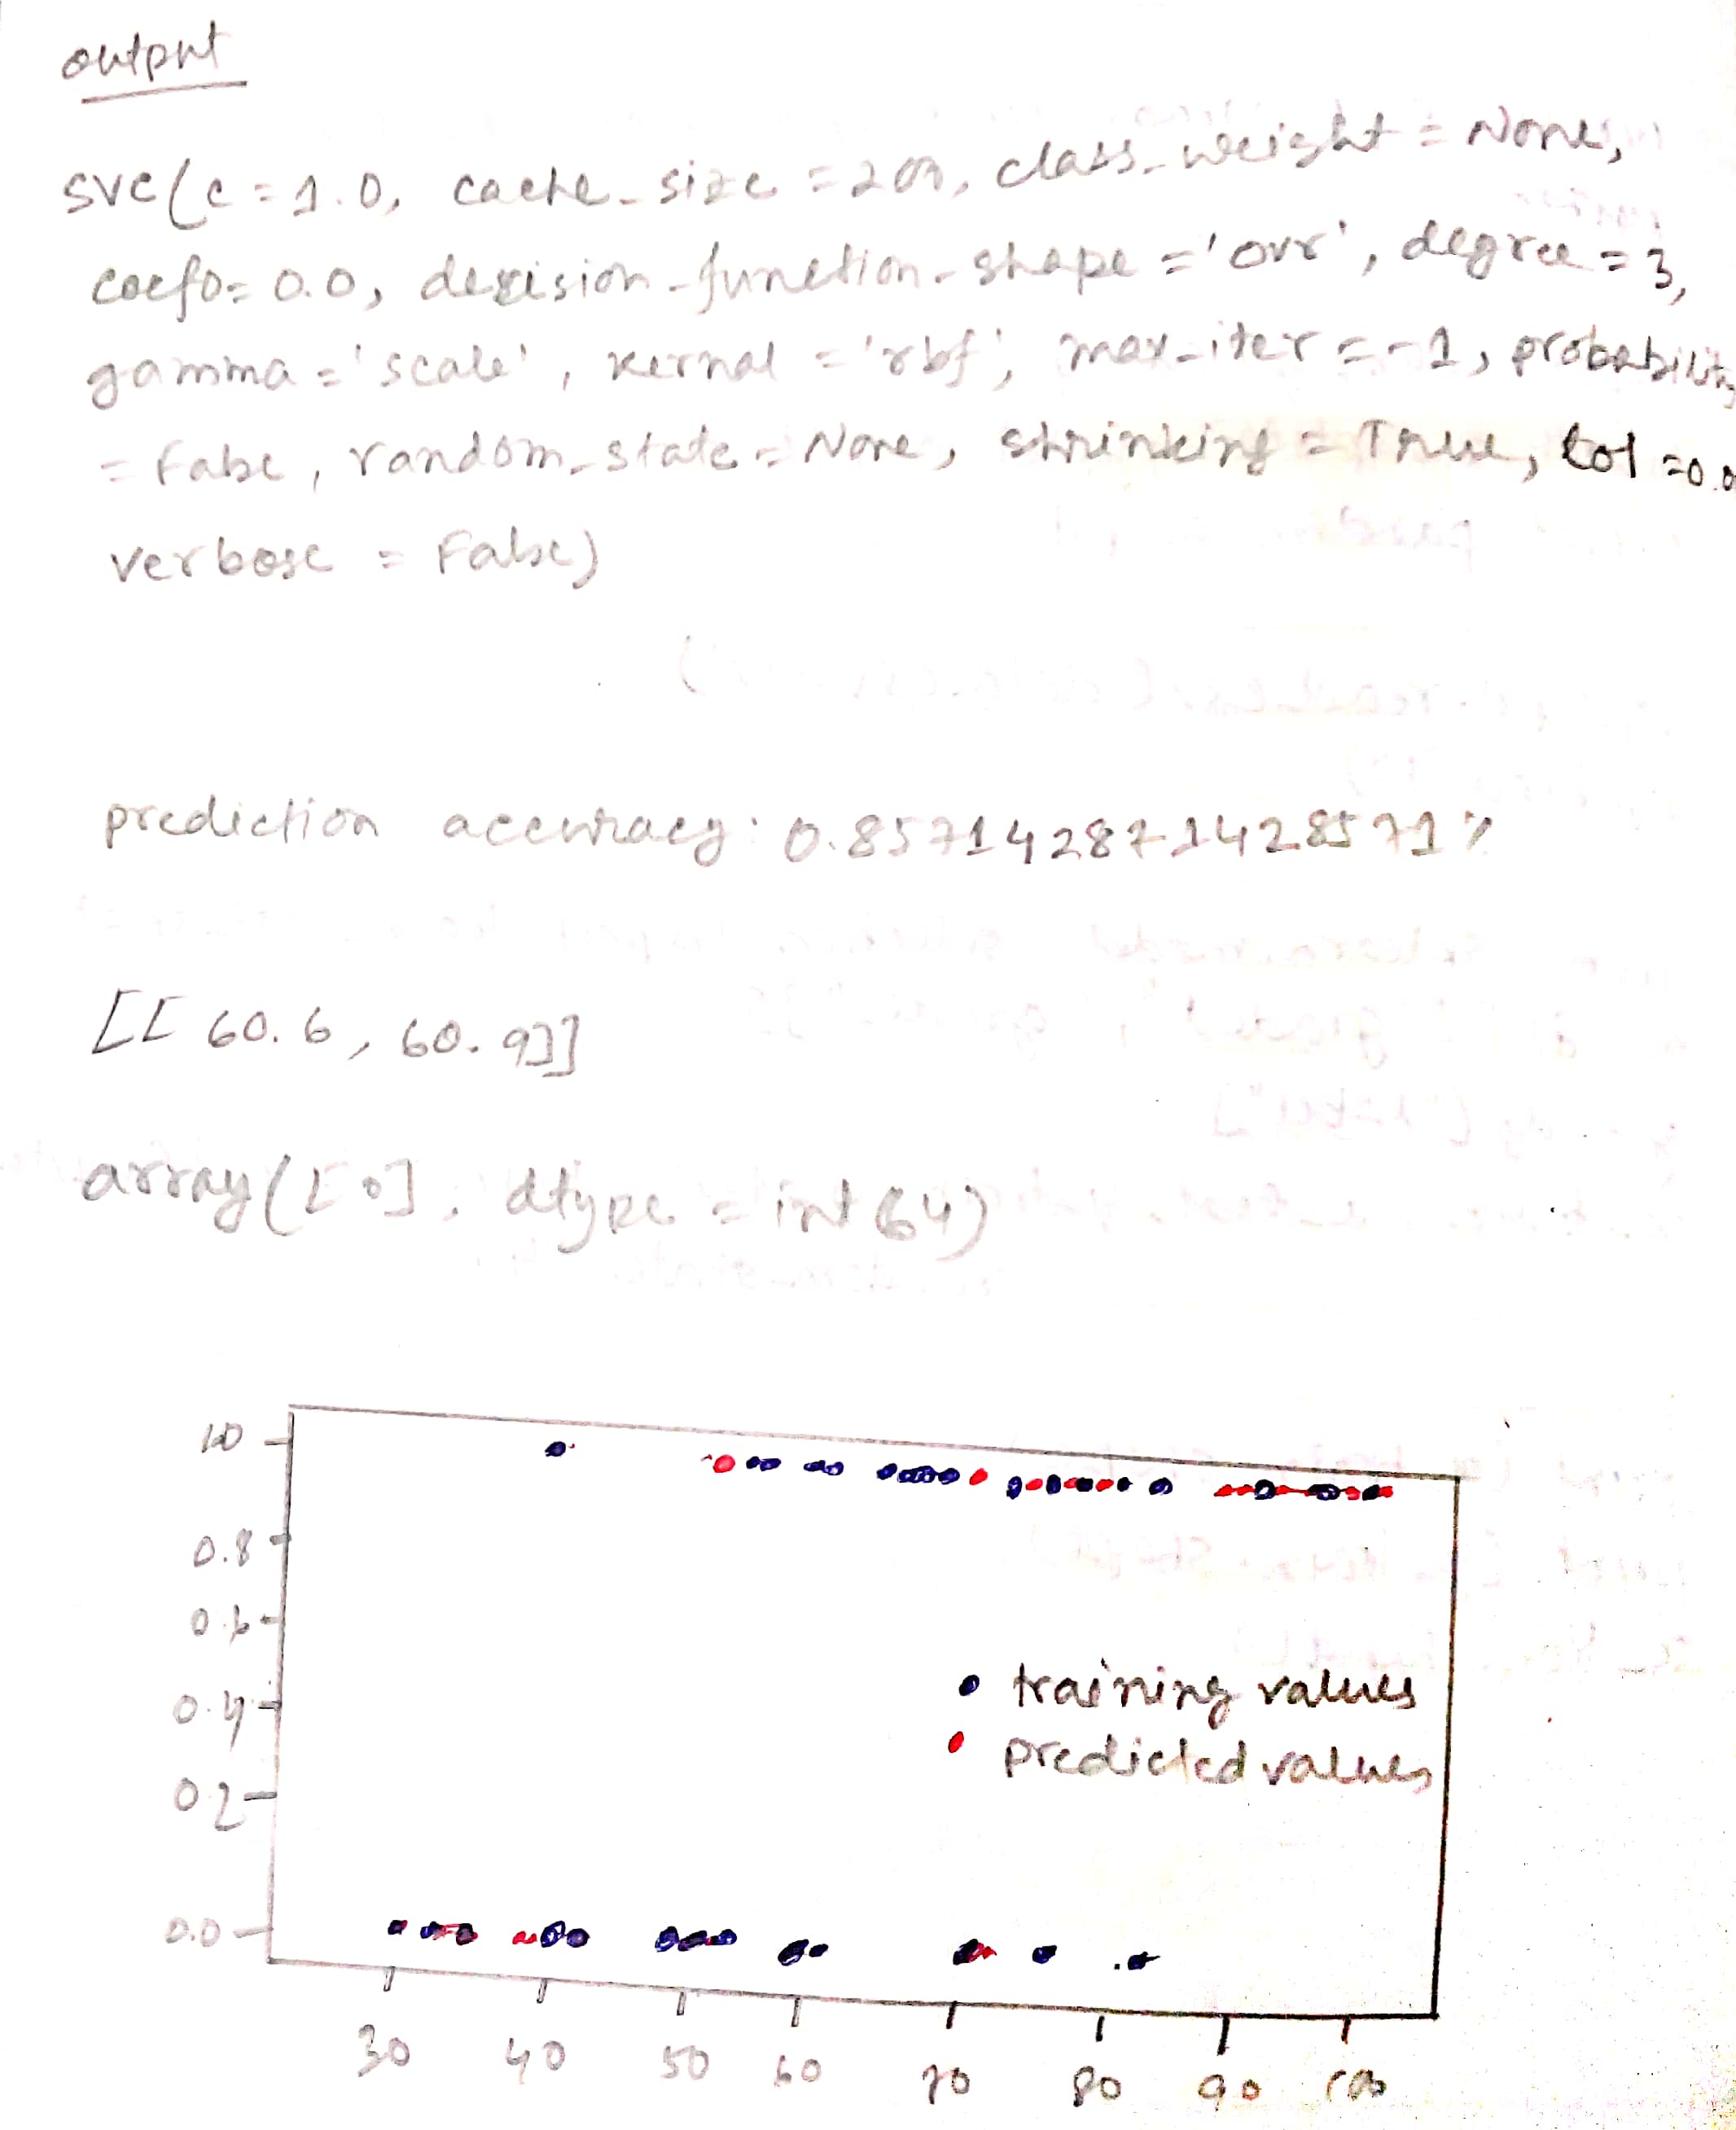 output
svc(c=1.0, cache_size =200, class_weight = None,
coefo= 0.0, decision_function_shape ='ovr', degree=3,
gamma='scale', kernal ='rbf', max_iter=-1, probability
= False, random_state=None, shrinking = True, tol =0.0
verbose = False)
prediction accuracy: 0.8571428714285 71%
[[60.6, 60.9]]
array([0], dtype = int 64)
1.0
0.8
0.6
0.4
• training values
• predicted values
0.2
0.0
30 40 50 60 70 80 90 100